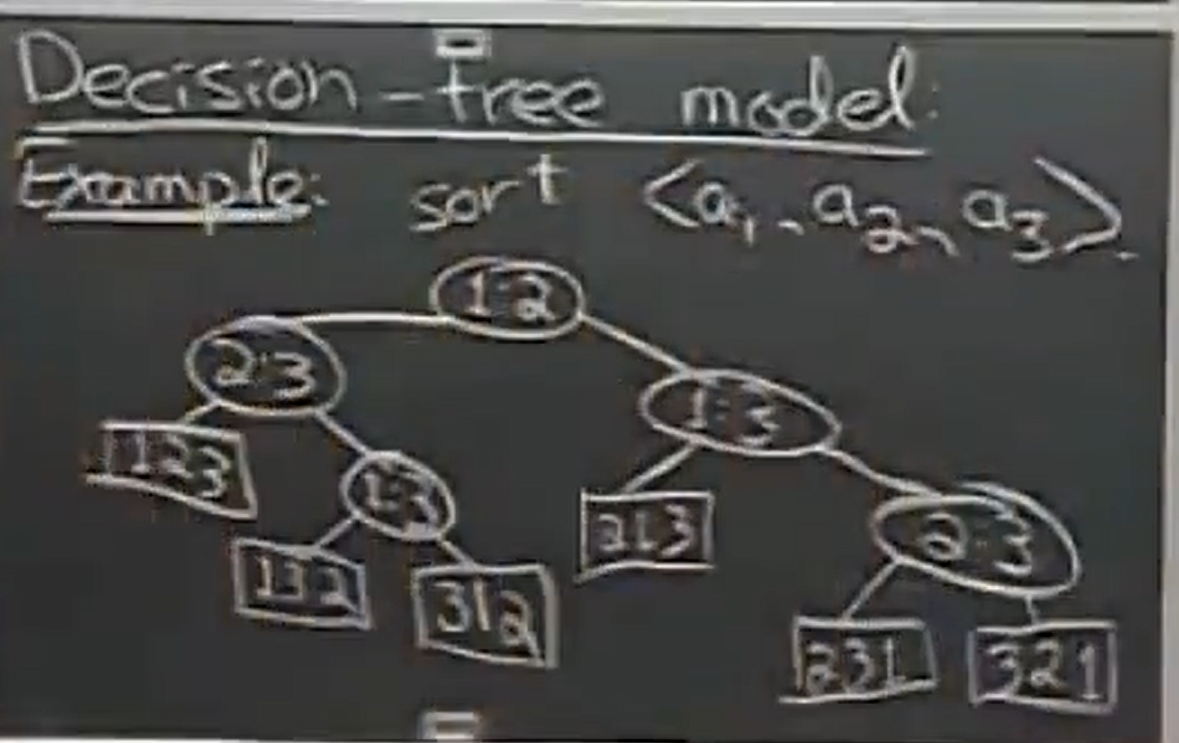 Decision-tree model:
Example: sort <a1, a2, a3>.
1:2
2:3
1:3
123
1:3
213
2:3
132
312
231
321